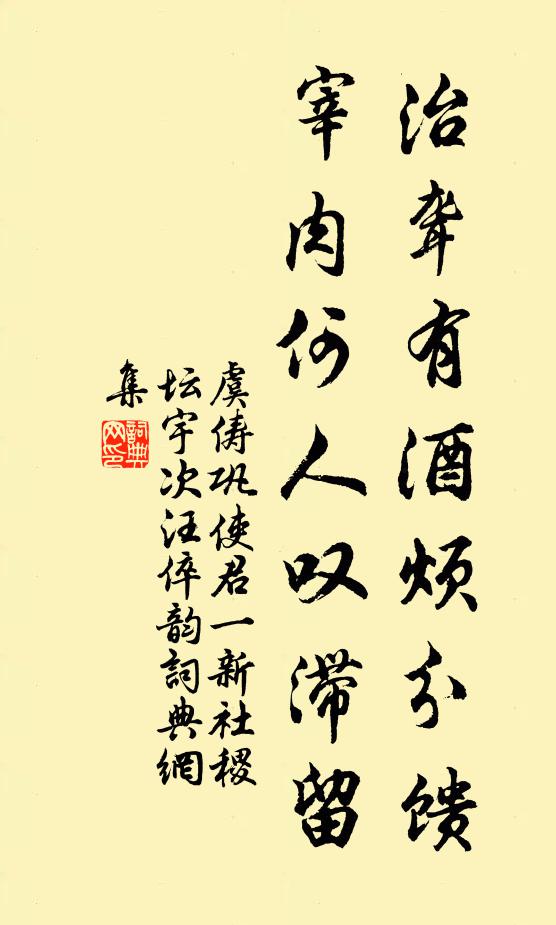 治聋有酒烦分馈
宰肉何人叹滞留
虞俦巩使君一新社稷
坛宇次汪倅韵詞典網
集
詞典网印